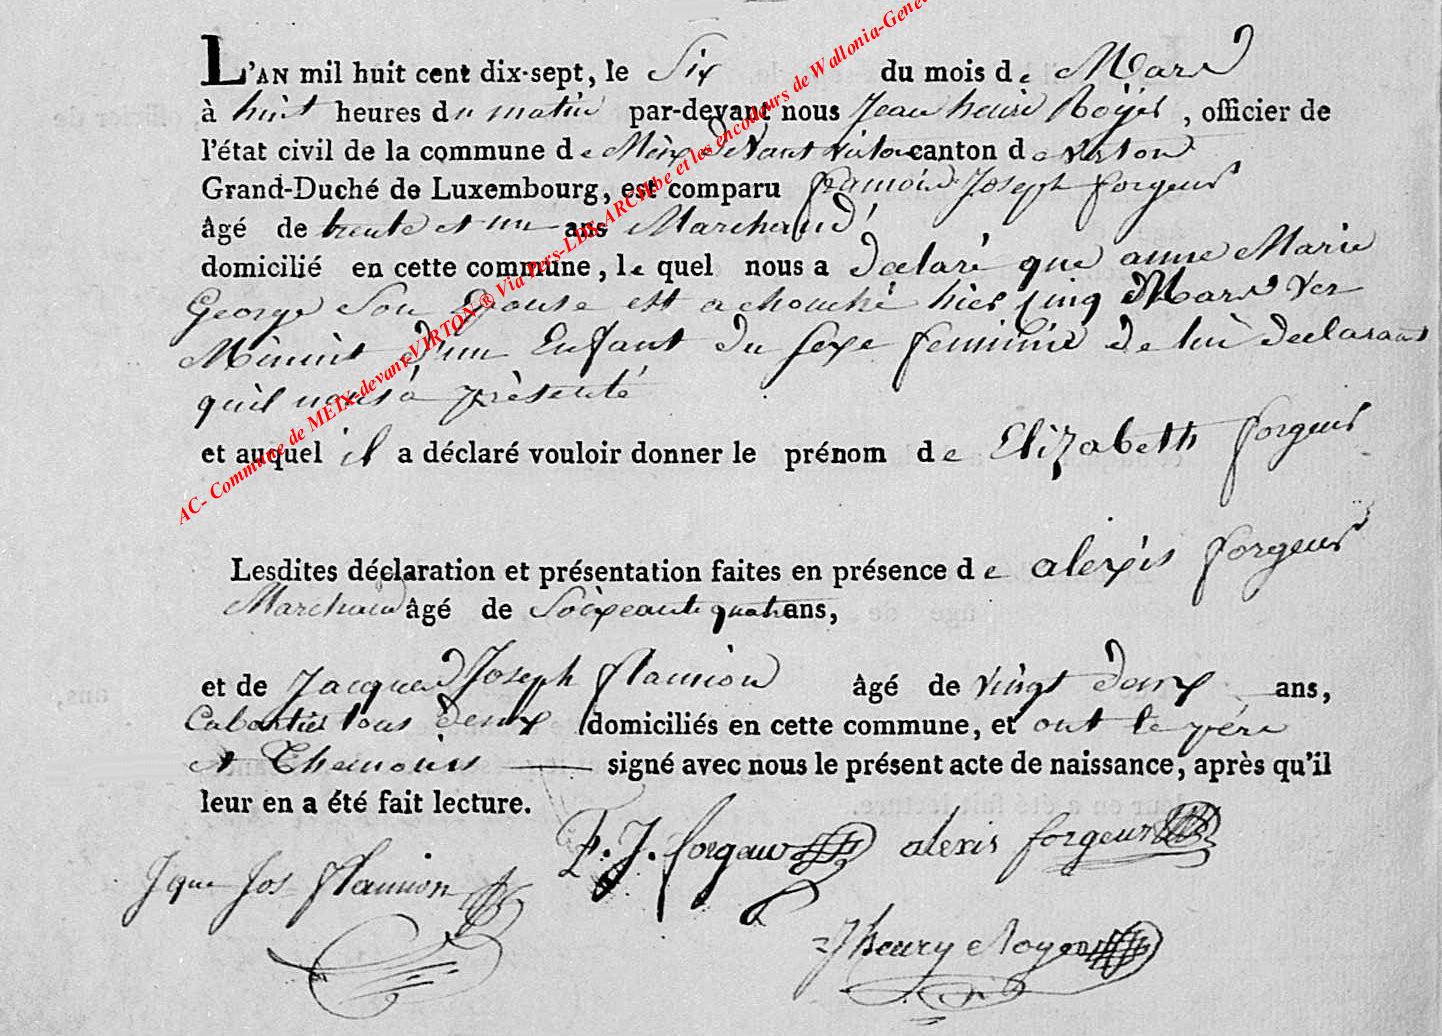 L'AN mil huit cent dix-sept, le Six du mois de Mars
à huit heures du matin par-devant nous Jean henri Royer, officier de
l'état civil de la commune de Meix devant virton canton de virton
Grand-Duché de Luxembourg, est comparu francois Joseph forgeur
âgé de trente et un ans Marchand
domicilié en cette commune, le quel nous a declaré que anne Marie
George Son Epouse est achouché hier cinq Mars ver
Minuit d'un Enfant du sexe feminin de lui declarant
qu'il nous à présenté
et auquel il a déclaré vouloir donner le prénom de Elizabeth forgeur
Lesdites déclaration et présentation faites en présence de alexis forgeur
Marchand âgé de Soixante quatre ans,
et de Jacques Joseph flamion âgé de vingt deux ans,
Cabartier tous deux domiciliés en cette commune, et ont le pére
et Themoins signé avec nous le présent acte de naissance, après qu'il
leur en a été fait lecture.
F. J. forgeur alexis forgeur
Jque Jos flamion
Jhenry Royer
AC- Commune de MEIX-devant-VIRTON ® Via Pers-LDS-ARCH.be et les encodeurs de Wallonia-Gene